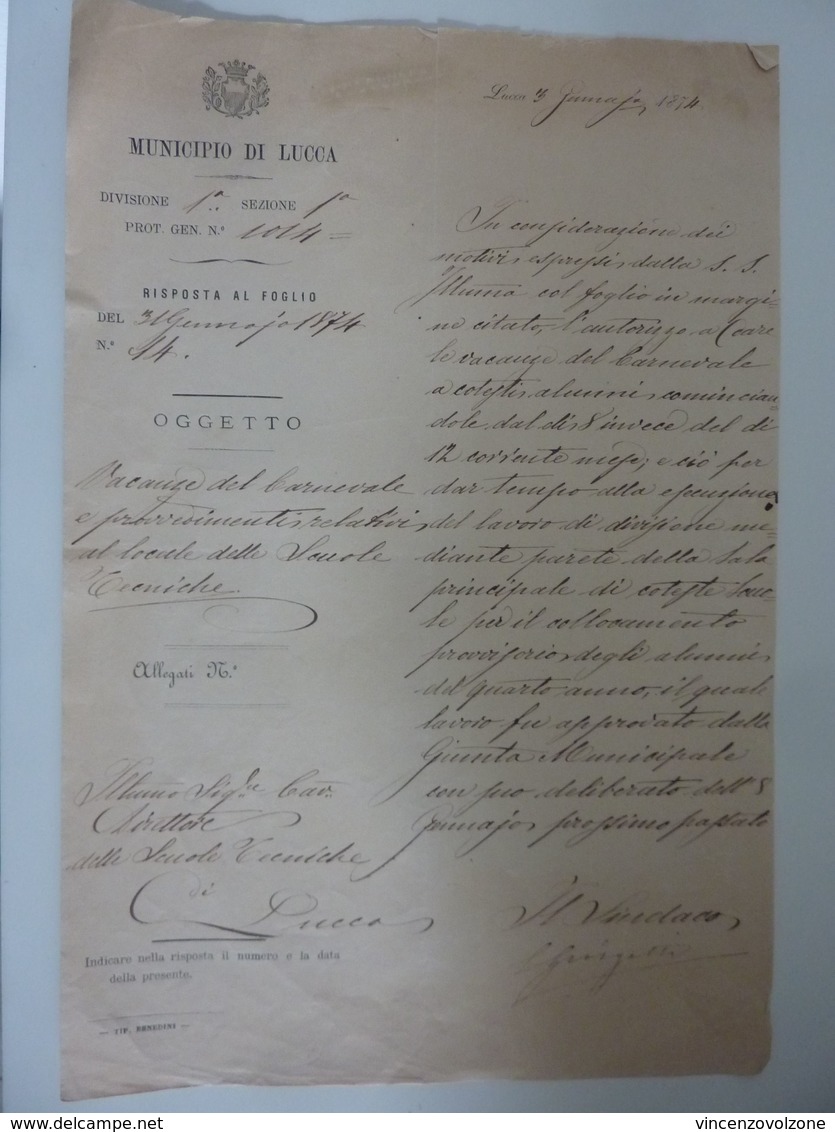 MUNICIPIO DI LUCCA
DIVISIONE 1ª SEZIONE 1ª
PROT. GEN. N.º 1014
RISPOSTA AL FOGLIO
DEL 31 Gennajo 1874
N.º 14.
OGGETTO
Vacanze del Carnevale
e provvedimenti relativi
al locale delle Scuole
Tecniche.
Allegati N.º
Illumo Sigre Cav.
Direttore
delle Scuole Tecniche
di
Lucca
Indicare nella risposta il numero e la data
della presente.
— TIP. BENEDINI —
Lucca 3 1874
In considerazione dei
motivi espressi dalla S. S.
Illuma col foglio in margi
ne citato, l'autorizzo a
le vacanze del Carnevale
a cotesti alunni comincian
dole dal dì 8 invece del dì
12 corrente mese; e ciò per
dar tempo alla esecuzione
del lavoro di divisione me
diante parete della Sala
principale di coteste Scuo
le per il collocamento
provvisorio degli alunni
del quarto anno, il quale
lavoro fu approvato dalla
Giunta Municipale
con suo deliberato dell' 8
Gennajo prossimo passato
Il Sindaco
vincenzovolzone